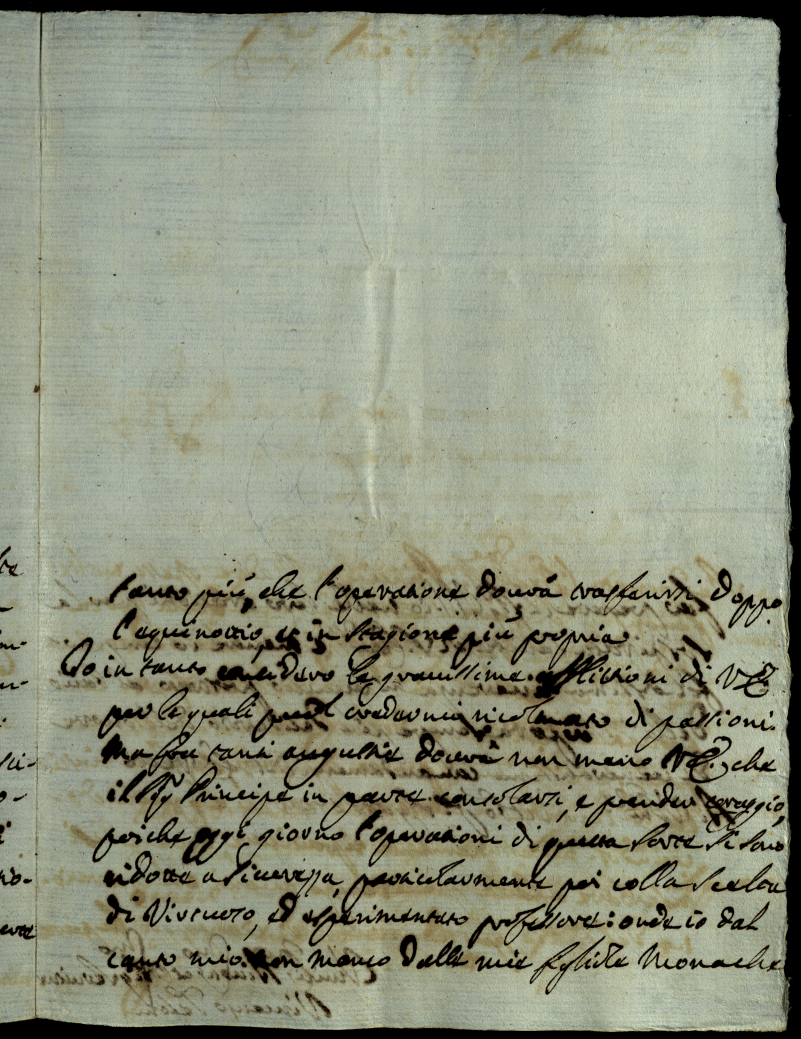 tanto più, che l'operatione dovrà trasferirsi doppo
l'equinottio, et in stagione più propria
Io in tanto considero le gravissime afflittioni di V.E.
per le quali può credermi ricolmato di passioni.
Ma fra tanti angustie dovrà non meno V.E. che
il Sig. Principe in parte consolarsi, e prender coraggio,
poiche oggi giorno l'operationi di questa sorte si sono
ridotte a sicurezza, particolarmente poi colla scelta
di virtuoso, ed esperimentato professore: onde io dal
canto mio, non meno dalle mie figliole Monache